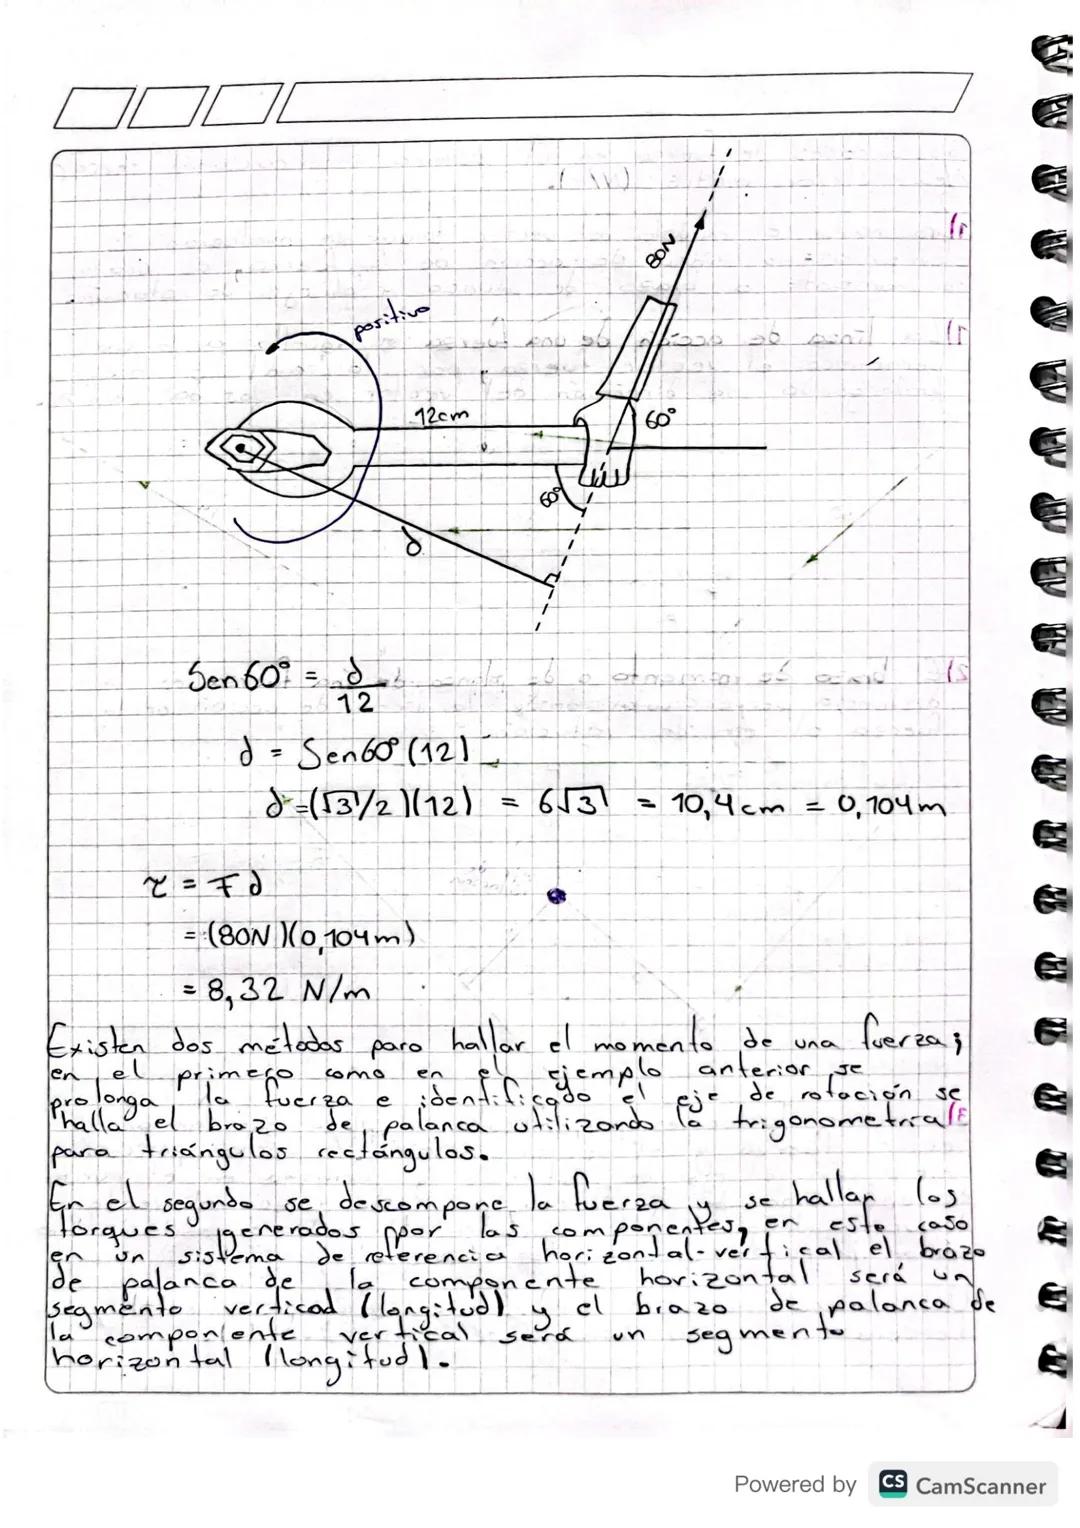 positivo
80N
12cm
60°
60°
d
Sen60° = d
12
d = Sen60°(12)
d=(√3/2)(12) = 6√3 = 10,4cm = 0,104m
τ = Fd
= (80N)(0,104m)
= 8,32 N/m
Existen dos métodos para hallar el momento de una fuerza;
en el primero como en el ejemplo anterior se
prolonga la fuerza e identificado el eje de rotación se
halla el brazo de palanca utilizando la trigonometría
para triángulos rectángulos.
En el segundo se descompone la fuerza y se hallan los
torques generados por las componentes, en este caso
en un sistema de referencia horizontal-vertical el brazo
de palanca de la componente horizontal será un
segmento vertical (longitud) y el brazo de palanca de
la componente vertical será un segmento
horizontal (longitud).
Powered by CS CamScanner